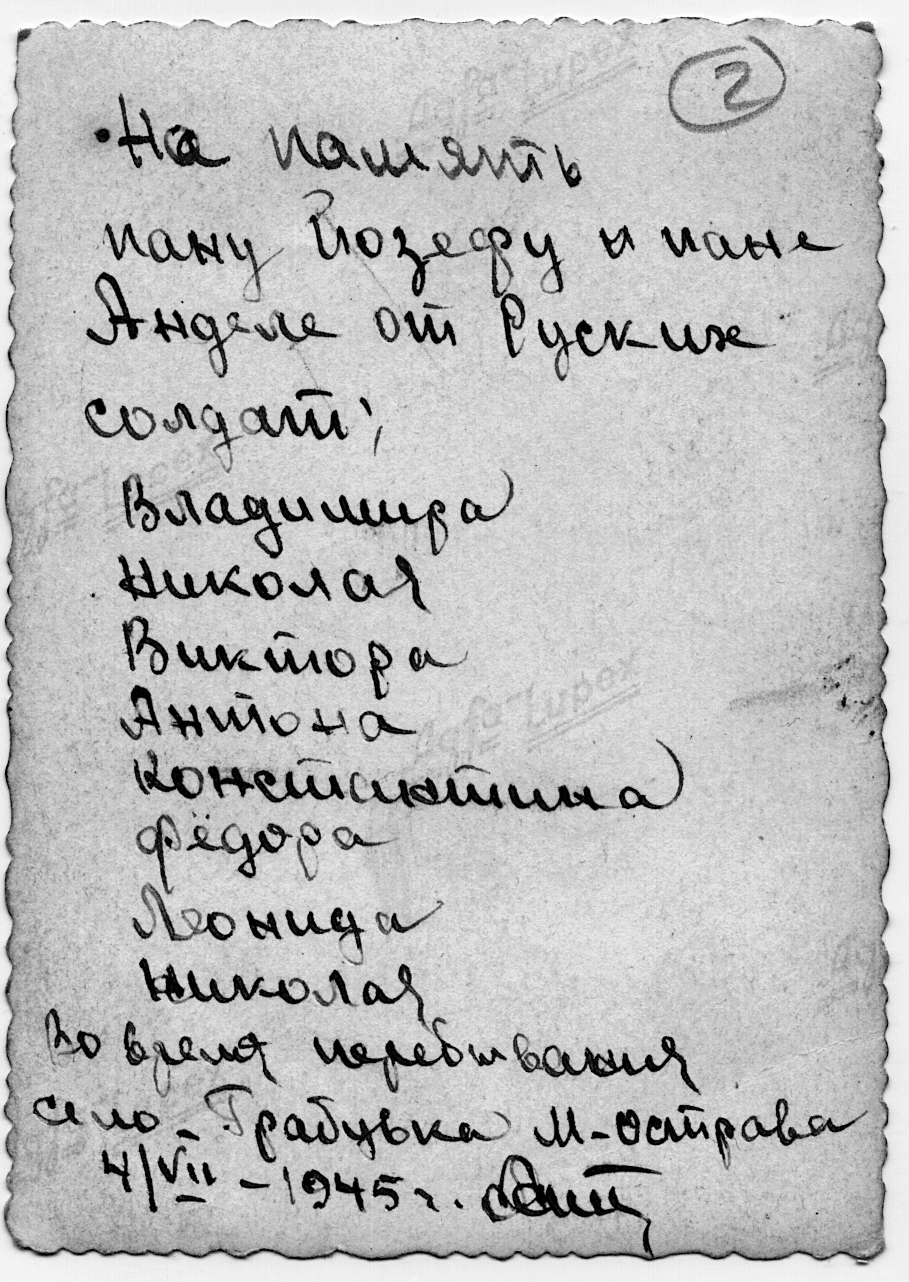 2
На память
пану Йозефу и пане
Анделе от Руских
солдат;
Владимира
Николая
Виктора
Антона
Константина
Фёдора
Леонида
Николая
Во время перебивания
село - Грабуська М-Острава
4/VII - 1945 г.
Agfa-Lupex
Agfa-Lupex
Agfa-Lupex